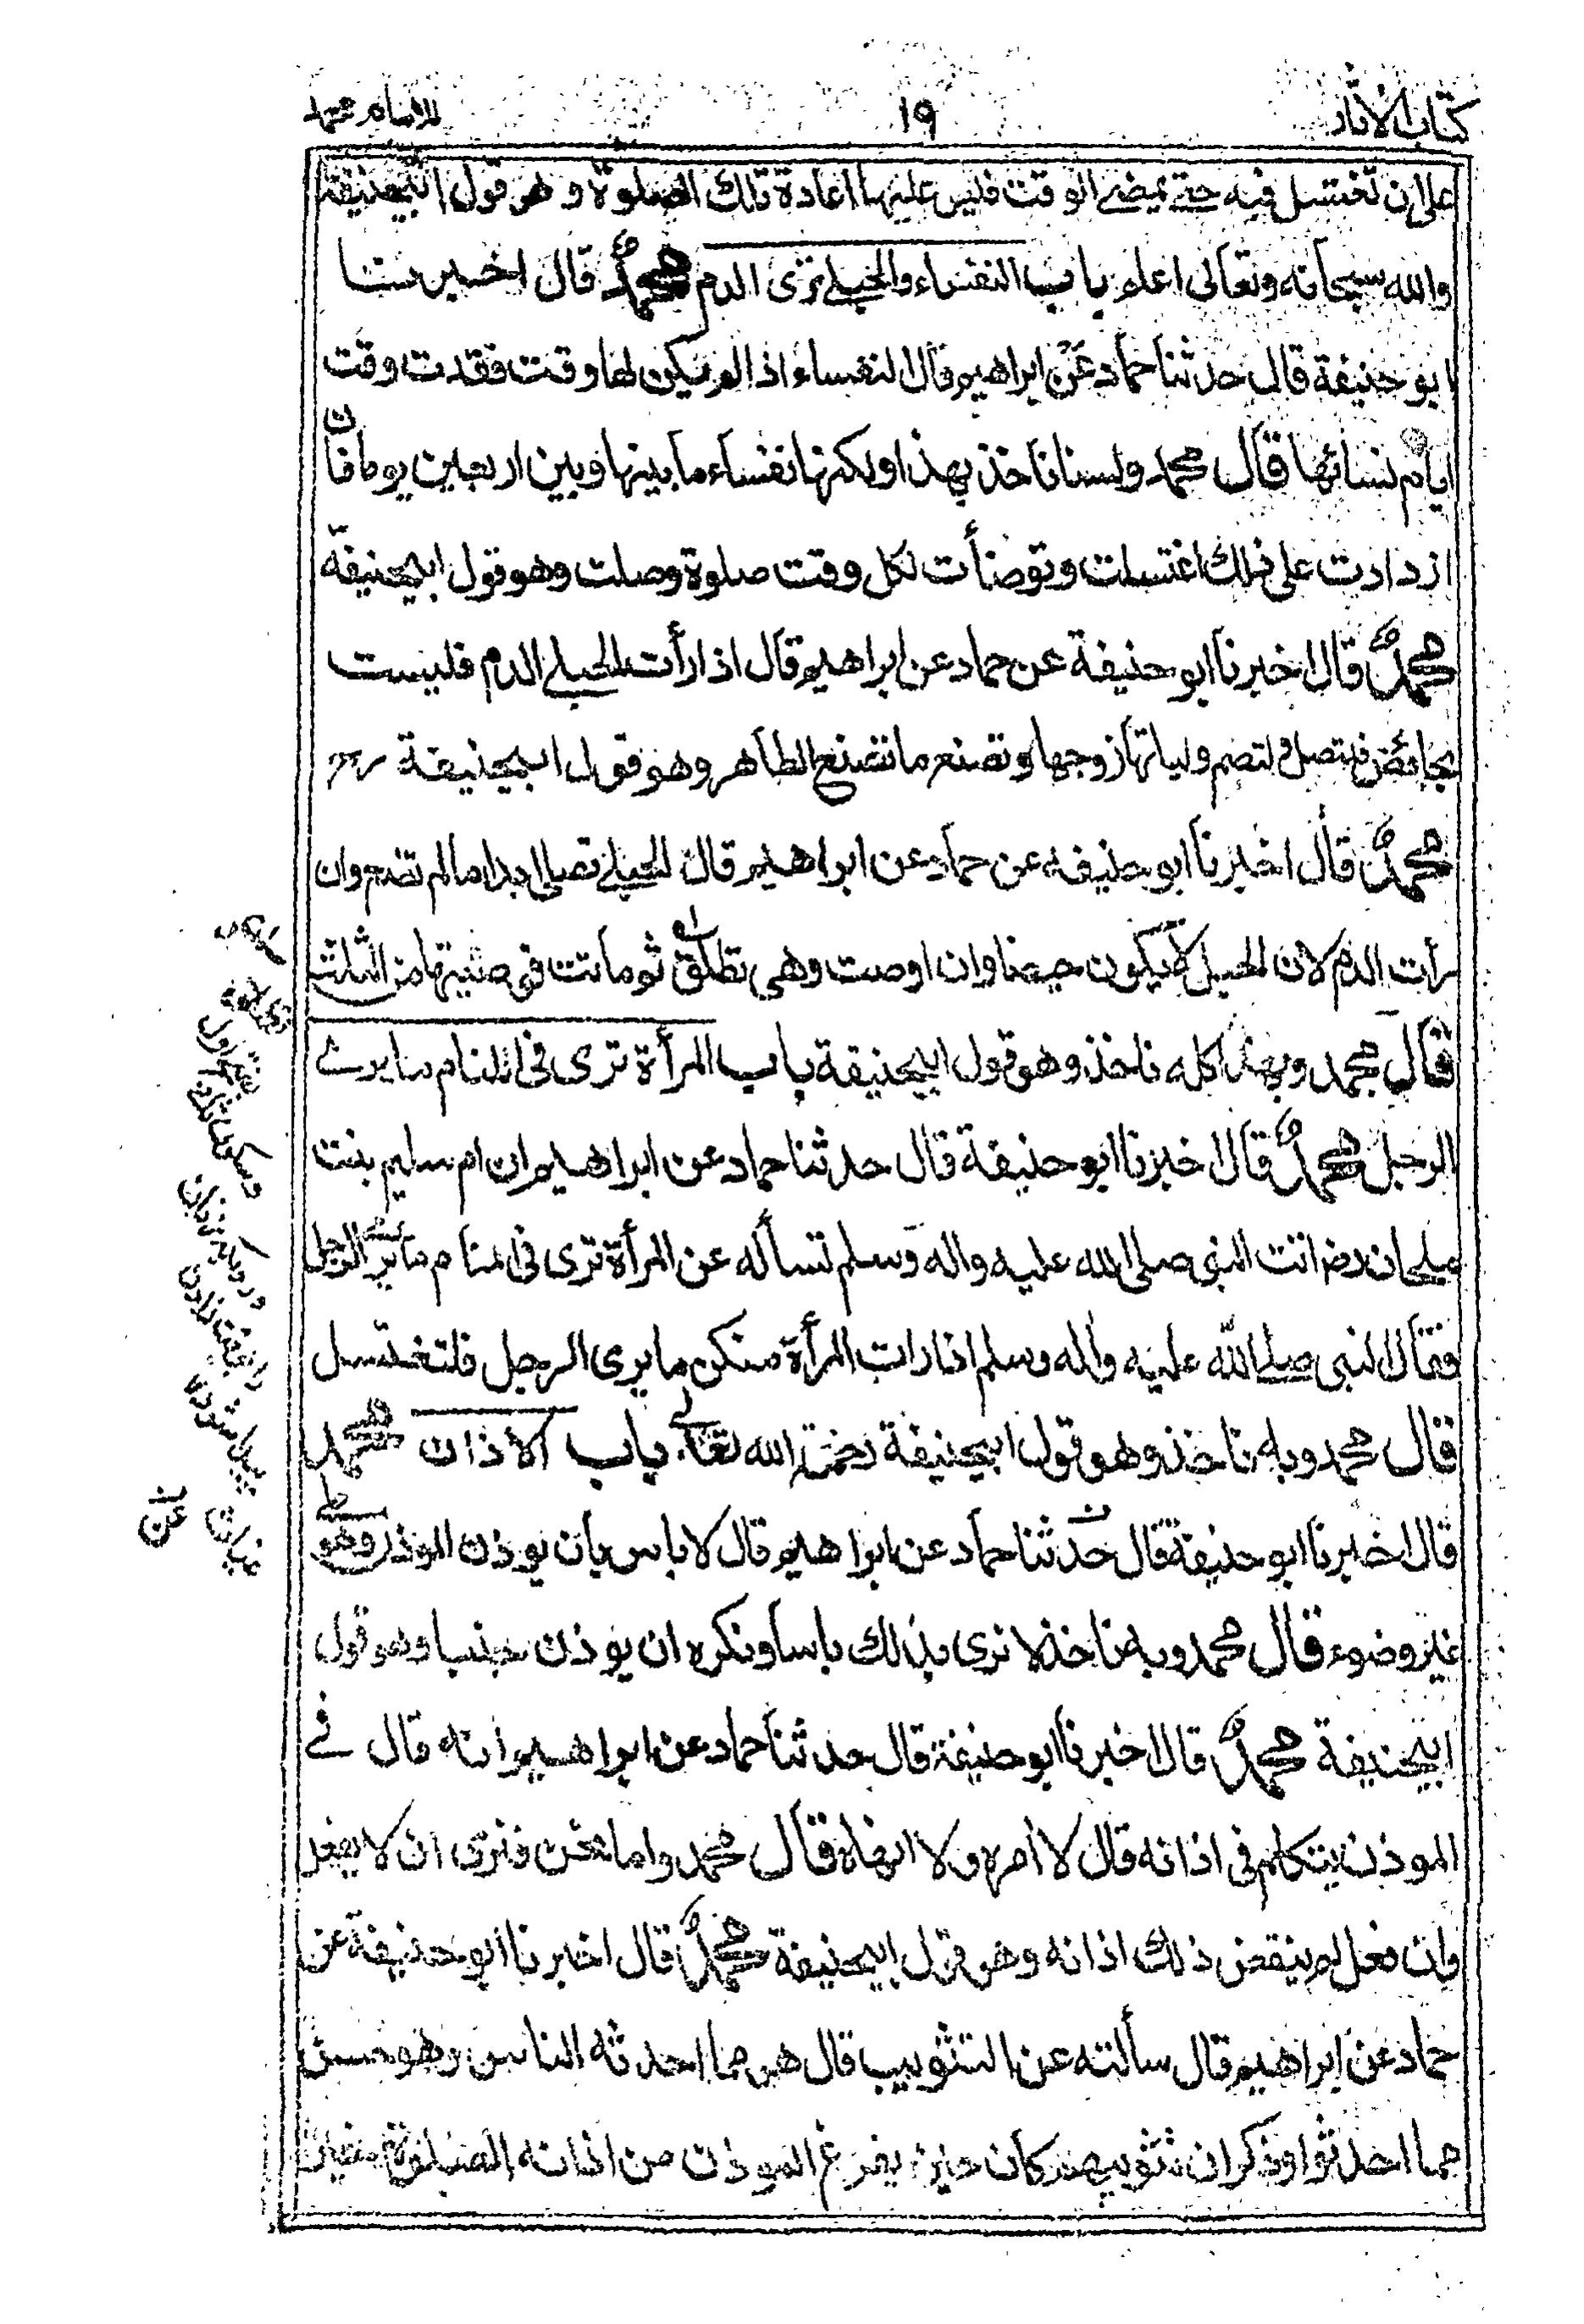 كتاب الآثار
١٩
للامام محمد
على ان تغتسل فيه حتى يمضي الوقت فليس عليها اعادة تلك الصلوة وهو قول ابيحنيفة
والله سبحانه وتعالى اعلم باب النفساء والحبلى ترى الدم محمد قال اخبرنا
ابو حنيفة قال حدثنا حماد عن ابراهيم قال النفساء اذا لم يكن لها وقت فقدت وقت
ايام نسائها قال محمد ولسنا ناخذ بهذا ولكنها نفساء ما بينها وبين اربعين يوما فان
ازدادت على ذلك اغتسلت وتوضأت لكل وقت صلوة وصلت وهو قول ابيحنيفة
محمد قال اخبرنا ابو حنيفة عن حماد عن ابراهيم قال اذا رأت الحبلى الدم فليست
بحائض فلتصل ولتصم ولياتها زوجها وتصنع ما تصنع الطاهر وهو قول ابيحنيفة
محمد قال اخبرنا ابو حنيفه عن حماد عن ابراهيم قال الحبلى تصلى ابدا مالم تضع وان
رأت الدم لان الحبل لا يكون حيضا وان اوصت وهى تطلق ثم ماتت فوصيتها من الثلث
قال محمد وبهذا كله ناخذ وهو قول ابيحنيفة باب المرأة ترى فى المنام ما يرى
الرجل محمد قال اخبرنا ابو حنيفة قال حدثنا حماد عن ابراهيم ان ام سليم بنت
ملحان رض اتت النبى صلى الله عليه واله وسلم تسأله عن المرأة ترى فى المنام ما يرى الرجل
فقال النبى صلى الله عليه واله وسلم اذا رات المرأة منكن ما يرى الرجل فلتغتسل
قال محمد وبه ناخذ وهو قول ابيحنيفة رحمة الله تعالى باب الاذان محمد
قال اخبرنا ابو حنيفة قال حدثنا حماد عن ابراهيم قال لا باس بان يوذن الموذن وهو على
غير وضوء قال محمد وبه ناخذ لا نرى بذلك باسا ونكره ان يوذن جنبا وهو قول
ابيحنيفة محمد قال اخبرنا ابو حنيفة قال حدثنا حماد عن ابراهيم انه قال فى
الموذن يتكلم فى اذانه قال لا آمره ولا انهاه قال محمد واما نحن فنرى ان لا يفعل
وان فعل لم ينقض ذلك اذانه وهو قول ابيحنيفة محمد قال اخبرنا ابو حنيفة عن
حماد عن ابراهيم قال سألته عن التثويب قال هو مما احدثه الناس وهو حسن
مما احدثوا وذكر ان تثويبهم كان حين يفرغ الموذن من اذانه الصلوة